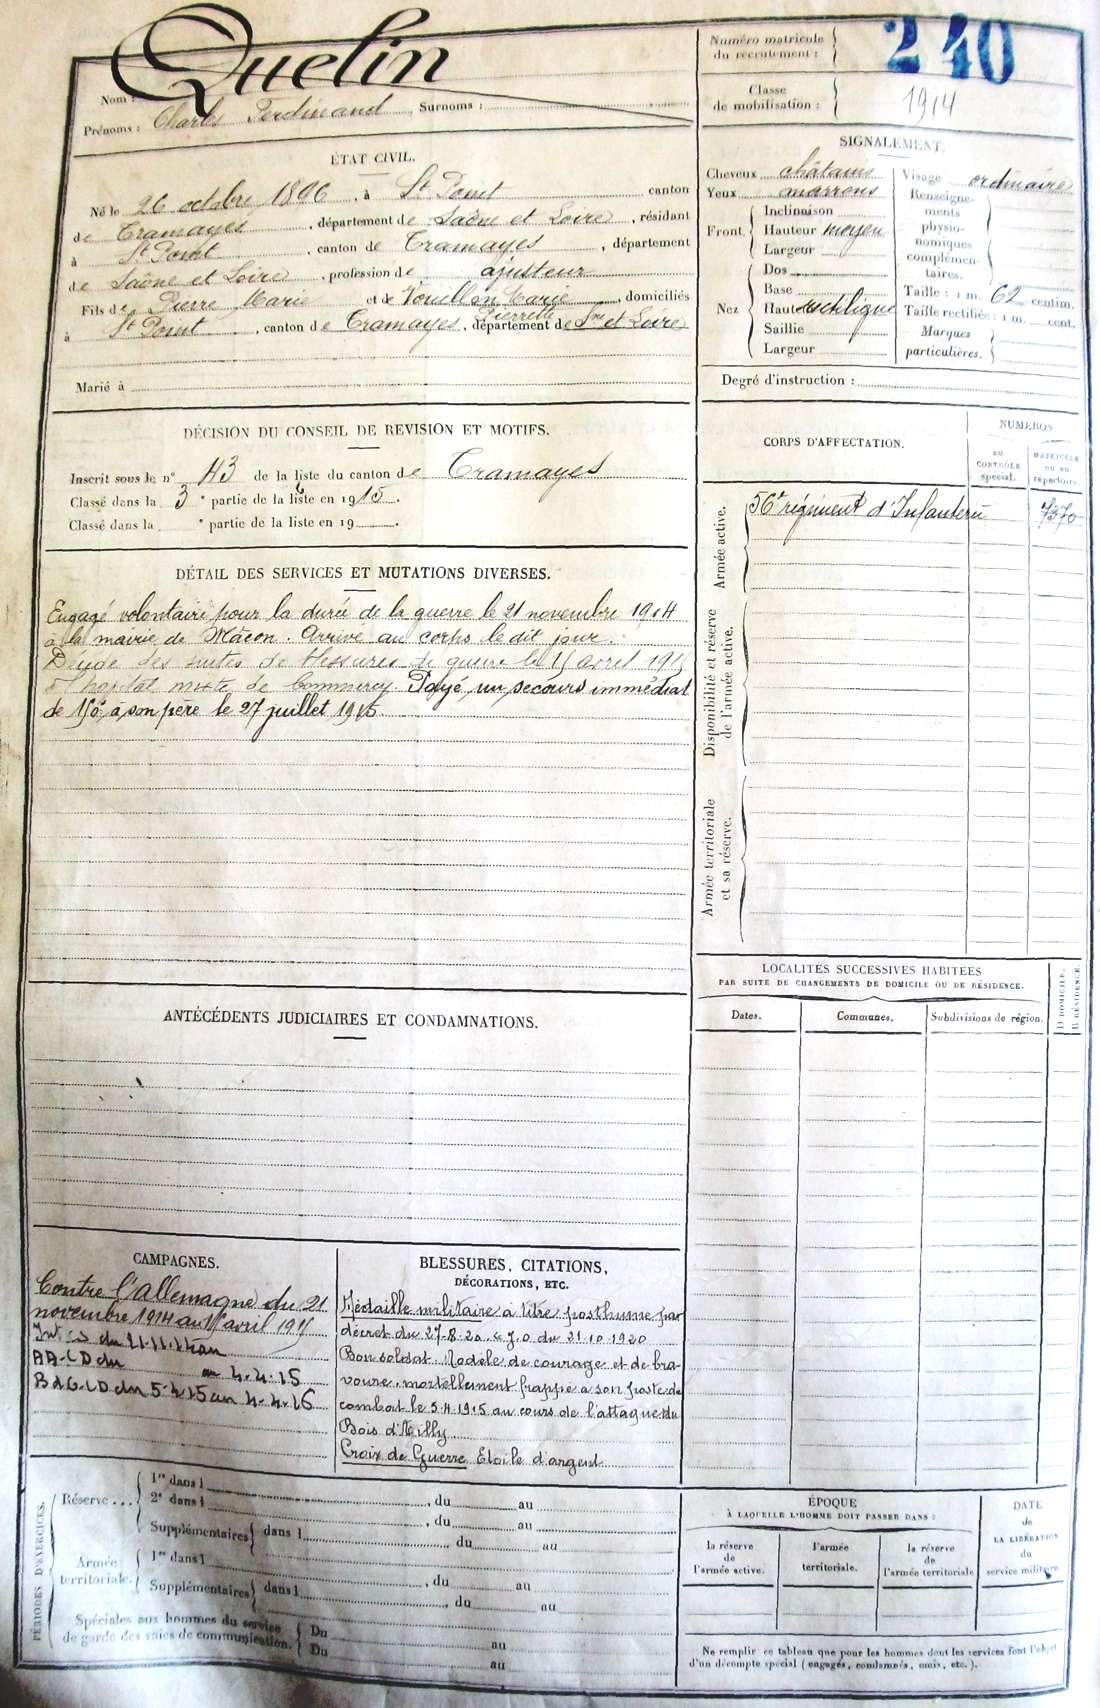 Quelin
Nom :
Prénoms : Charles Ferdinand Surnoms :
Numéro matricule
du recrutement : 240
Classe
de mobilisation : 1914
ÉTAT CIVIL.
Né le 26 octobre 1896, à St Point canton
de Tramayes, département de Saône et Loire, résidant
à St Point, canton de Tramayes, département
de Saône et Loire, profession de ajusteur
Fils de Pierre Marie et de Vouillon Marie Pierrette, domiciliés
à St Point, canton de Tramayes, département de Sne et Loire
Marié à
SIGNALEMENT.
Cheveux châtains
Yeux marrons
Front. Inclinaison
Hauteur moyen
Largeur
Nez Dos
Base
Hauteur rectiligne
Saillie
Largeur
Visage ordinaire
Renseigne-
ments
physio-
nomiques
complémen-
taires.
Taille : 1 m. 62 centim.
Taille rectifiée : 1 m. cent.
Marques
particulières.
Degré d'instruction :
DÉCISION DU CONSEIL DE REVISION ET MOTIFS.
Inscrit sous le n° 43 de la liste du canton de Tramayes
Classé dans la 3 e partie de la liste en 1915.
Classé dans la e partie de la liste en 19 .
CORPS D'AFFECTATION.
NUMÉROS
AU
CONTRÔLE
spécial.
MATRICULE
OU AU
répertoire.
Armée active.
56e régiment d'Infanterie 7370
Disponibilité et réserve
de l'armée active.
Armée territoriale
et sa réserve.
DÉTAIL DES SERVICES ET MUTATIONS DIVERSES.
Engagé volontaire pour la durée de la guerre le 21 novembre 1914
à la mairie de Mâcon. Arrivé au corps le dit jour.
Décédé des suites de blessures de guerre le 15 avril 1915
à l'hôpital mixte de Commercy. Payé un secours immédiat
de 150f à son père le 27 juillet 1915.
ANTÉCÉDENTS JUDICIAIRES ET CONDAMNATIONS.
LOCALITÉS SUCCESSIVES HABITÉES
PAR SUITE DE CHANGEMENTS DE DOMICILE OU DE RÉSIDENCE.
Dates.
Communes.
Subdivisions de région.
D DOMICILE.
R RÉSIDENCE.
CAMPAGNES.
Contre l'Allemagne du 21
novembre 1914 au 15 avril 1915
Int CS du 21.11.14 au
AA-CD du au 4.4.15
B de G.CD du 5.4.15 au 4.4.16
BLESSURES, CITATIONS,
DÉCORATIONS, ETC.
Médaille militaire à titre posthume par
décret du 27-8-20. J.O du 21.10.1920
Bon soldat. Modèle de courage et de bra-
voure, mortellement frappé à son poste de
combat le 5.4.1915 au cours de l'attaque du
Bois d'Ailly
Croix de Guerre Etoile d'argent
PÉRIODES D'EXERCICES.
Réserve ...
1re dans l , du au
2e dans l , du au
Supplémentaires dans l , du au
Armée
territoriale.
1re dans l , du au
Supplémentaires dans l , du au
Spéciales aux hommes du service
de garde des voies de communication.
Du au
Du au
ÉPOQUE
À LAQUELLE L'HOMME DOIT PASSER DANS :
la réserve
de
l'armée active.
l'armée
territoriale.
la réserve
de
l'armée territoriale
DATE
de
LA LIBÉRATION
du
service militaire.
Ne remplir ce tableau que pour les hommes dont les services font l'objet
d'un décompte spécial (engagés, condamnés, omis, etc.).